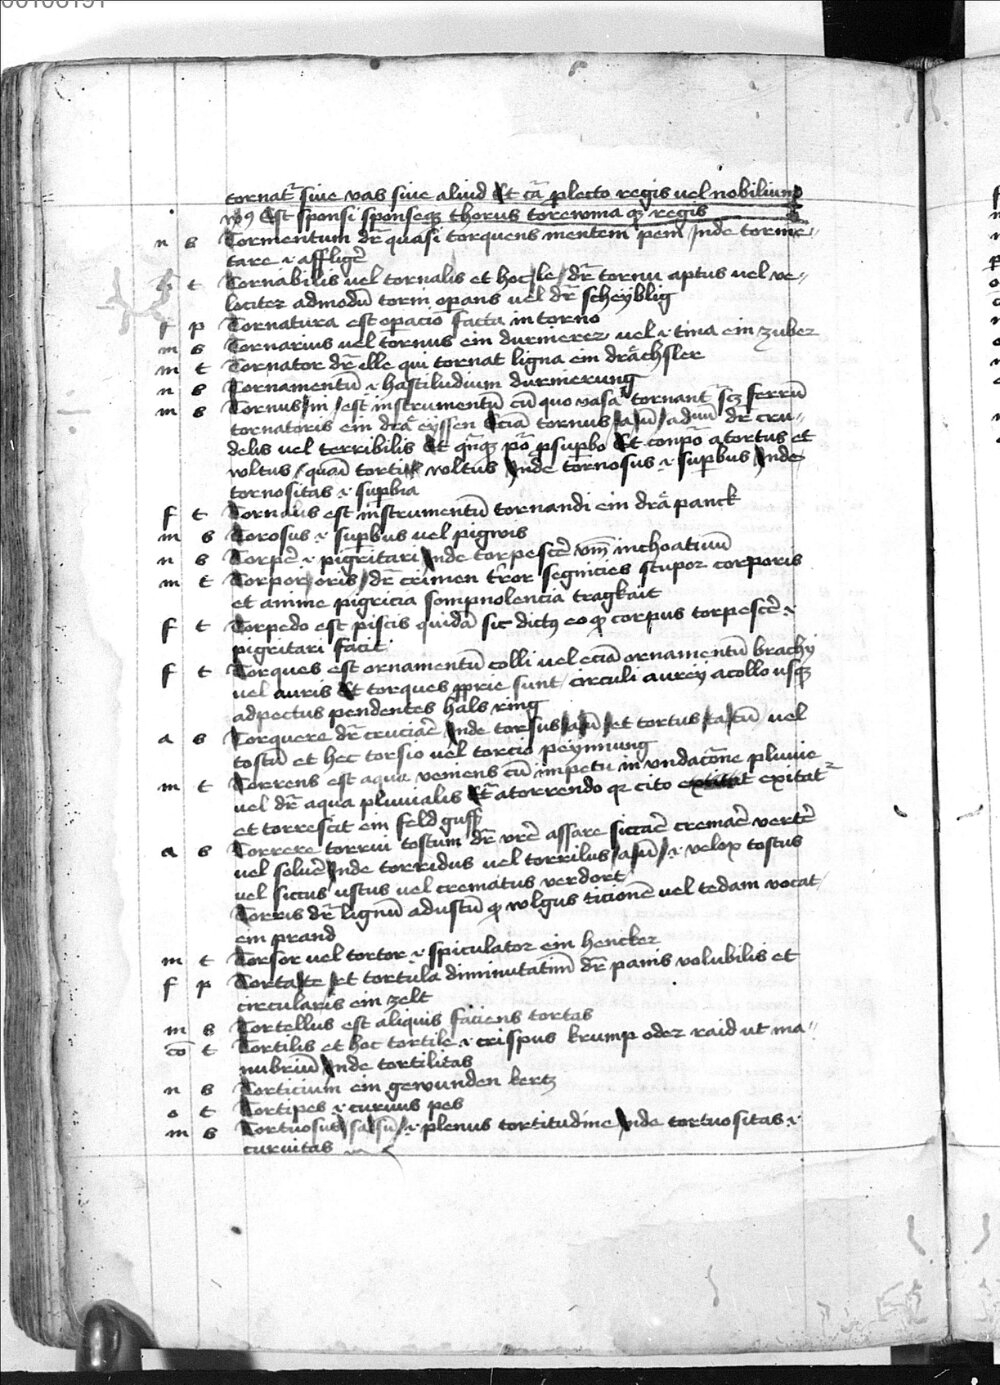 tornat᷑ siue vas siue aliud Et cā ꝓ lecto regis vel nobilium
v̄9 Est sponsi sponseqꝫ thorus torewma qꝫ regis
n s Tormentum dr̄ quasi torquens mentem pem̄ Inde torme-
tare ⁊ affligē
t Tornabilis vel tornalis et hoc /le/ dr̄ tornu aptus vel ve-
lociter admodū torni oꝑans vel dr̄ scheyblig
f p Tornatura est oꝑacio facta in torno
m s Tornarius vel tornus ein durnierer vel ⁊ tina ein zuber
m t Tornator dr̄ elle qui tornat ligna ein drächsler
n s Tornamentū ⁊ hastiludium durnierung
m s Tornus /ni/ est instrumentū cū quo vasa tornant᷑ scꝫ ferrū
tornatoris ein drä eyssen Eciā tornus /a/ū/ adiui dr̄ cru-
delis vel terribilis Et qn̄qꝫ po᷑ ꝓ suꝑbo Et conpo᷑ a tortus et
voltus / quasi torti voltus Inde tornosus ⁊ suꝑbus Inde
tornositas ⁊ suꝑbia
f t Tornalis est instrumentū tornandi ein drä panck
m s Torosus ⁊ suꝑbus vel pigwis
n s Torpē ⁊ pigritari Inde torpescē vm̄ inchoatiuū
m t Torpor /oris/ dr̄ crimen tr̄or segnicies stupor corporis
et anime pigricia sompnolencia tragkait
f t Torpedo est piscis quidā sic dictꝰ eo ꝙ corpus torpescē ⁊
pigritari facit
f t Torques est ornamentū colli vel eciā ornamentū brachy
vel auris Et torques ꝓprie sunt circuli aurej a collo usqꝫ
ad pectus pendentes hals ring
a s Torquere dr̄ cruciaē Inde torsus /a/ū/ et tortus /ta/tū vel
tostū et hec torsio vel torcio peynnung
m t Torrens est aqua veniens cū impetu in vndacōne pluuie
vel dr̄ aqua pluuialis Et᷑ a torrendo qꝛ cito exitat᷑
et torrescit ein feld guss
a s Torrere torrui tostum dr̄ vrē assare siccaē cremaē vertē
vel soluē Inde torridus vel torrilus /a/ū/ ⁊ velox tostus
vel siccus vstus vel crematus verdort
Torris dr̄ lignū adustū ꝙ wlgus ticionē vel tedam vocat
ein prand
m t Torsor vel tortor ⁊ spiculator ein hencker
f p Torta /te/ et tortula diminutatim̄ dr̄ panis volubilis et
circularis ein zelt
m s Tortellus est aliquis faciens tortas
cō t Tortilis et hoc tortile ⁊ crispus krump oder raid ut ma-
nubriū Inde tortilitas
n s Torticium ein gewunden kertz
o t Tortipes ⁊ curuus pes
m s Tortuosus /sa/sū/ ⁊ plenus tortitudine Inde tortuositas ⁊
curuitas